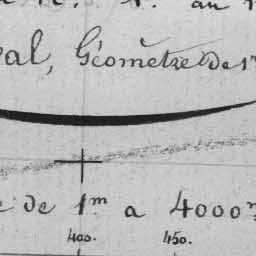 au
al, Géomètre De 1
e de 1m a 4000m
400. 450.